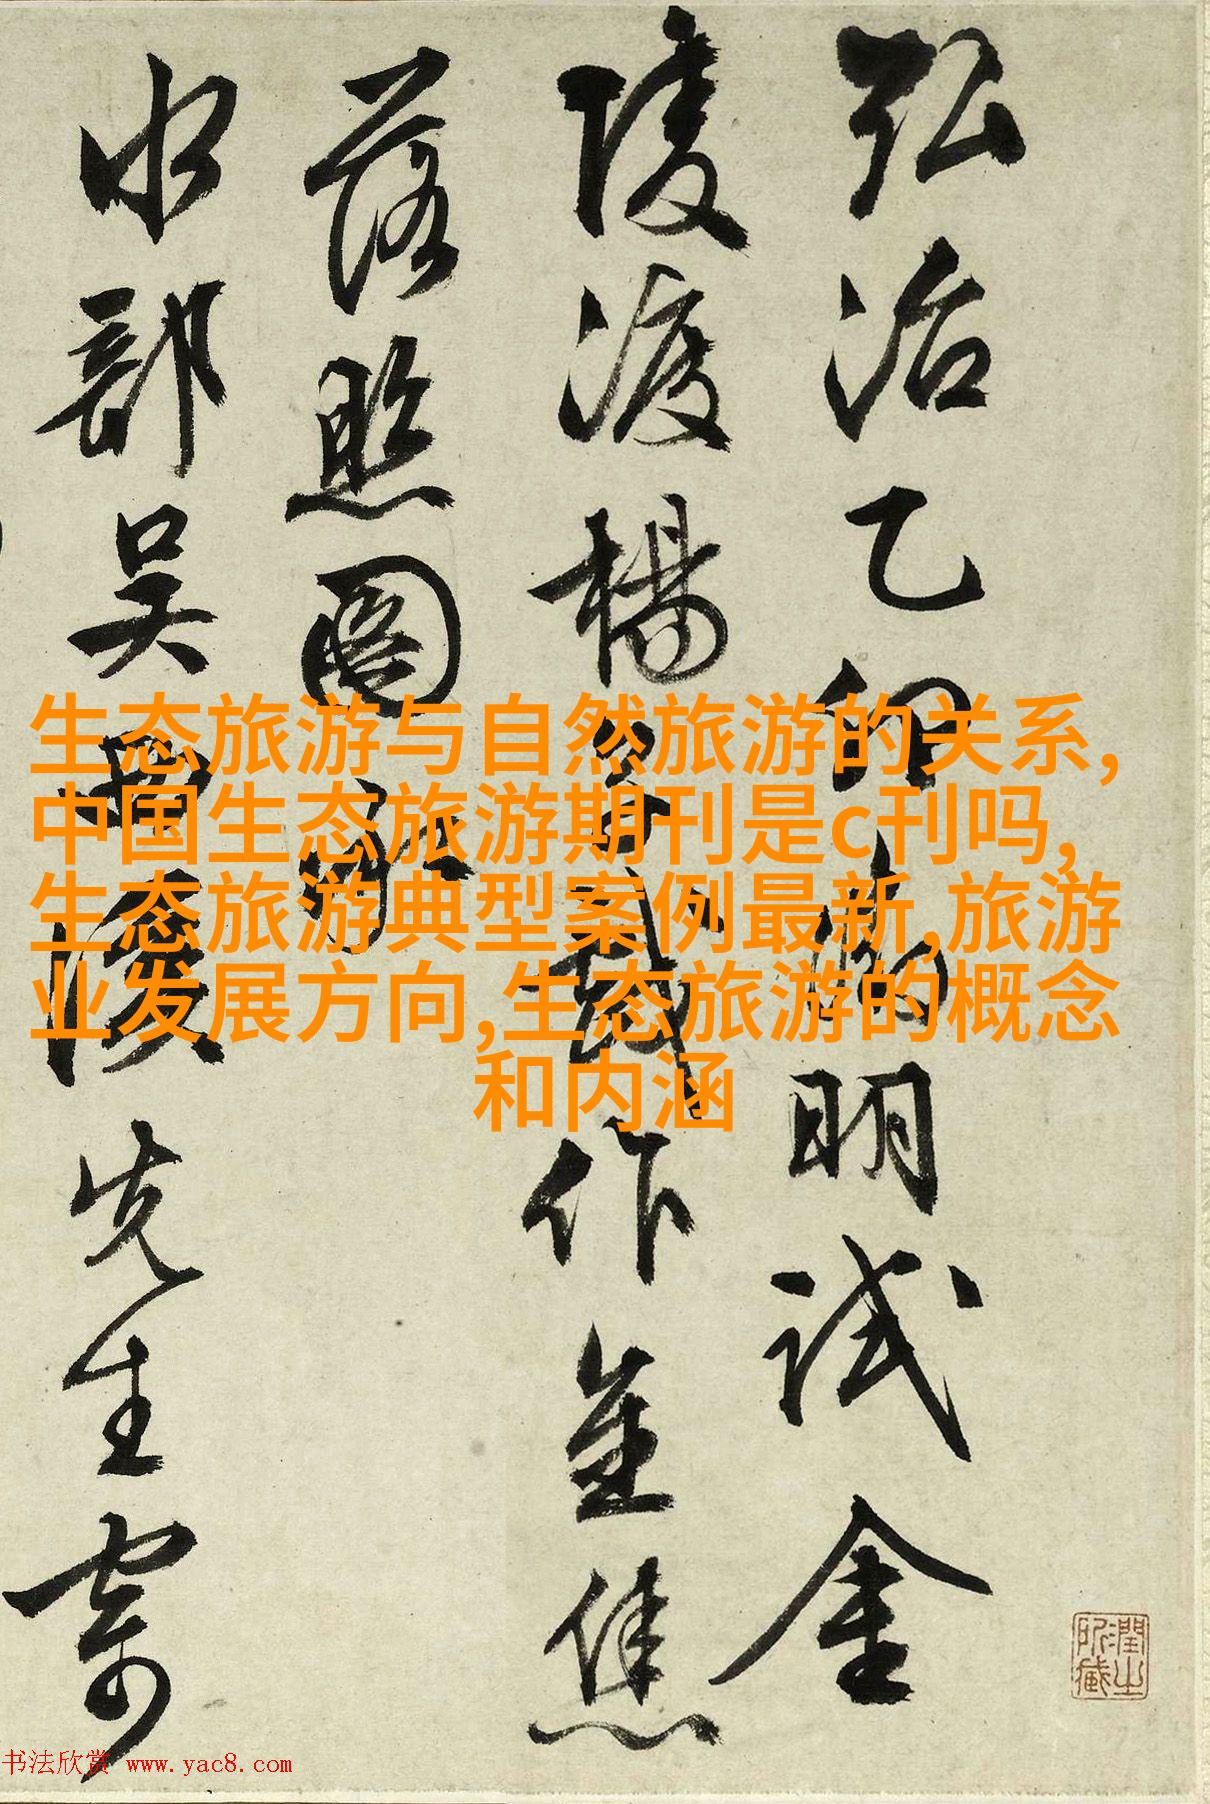 弘治乙卯清明試金
陵渡楊子戲作金焦
落照圖
水部吳溪先生寄
生态旅游与自然旅游的关系,
中国生态旅游期刊是c刊吗,
生态旅游典型案例最新,旅游
业发展方向,生态旅游的概念
和内涵
潤之所藏
书法欣赏 www.yac8.com